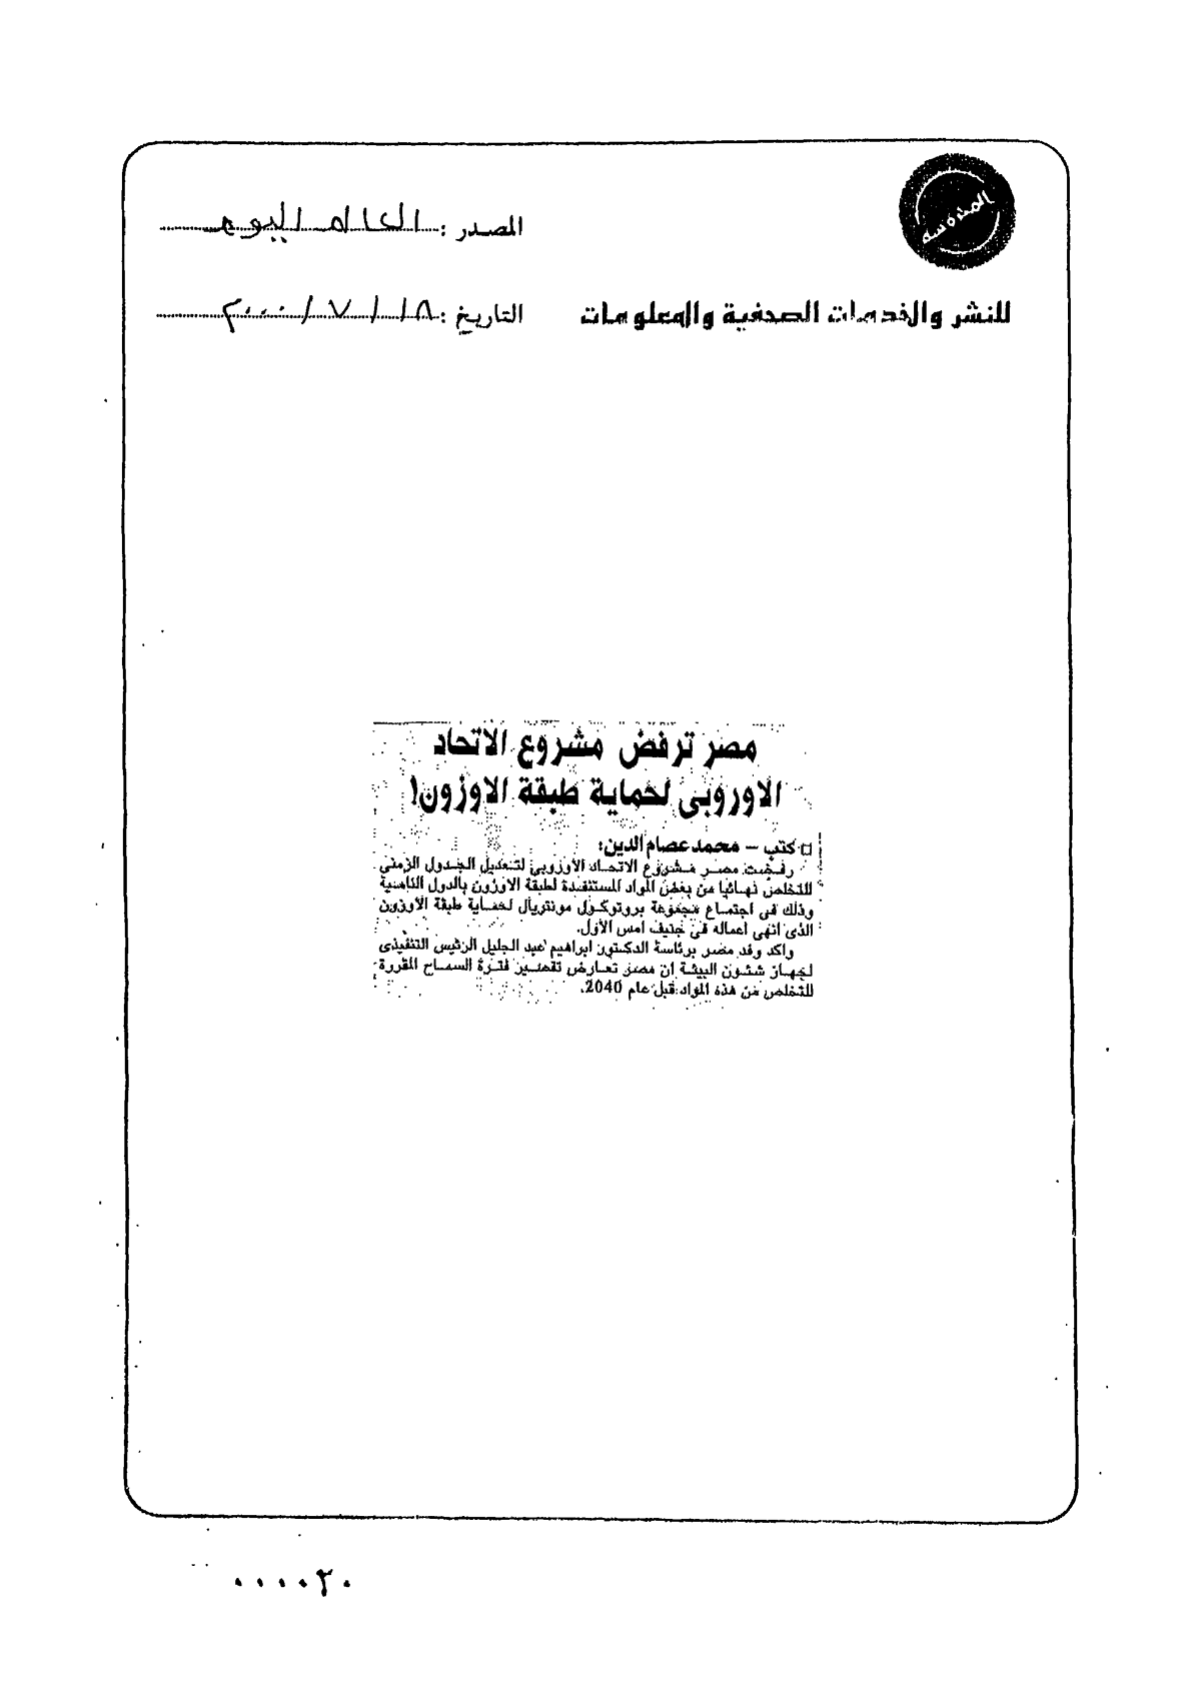 المصدر : العالم اليوم
للنشر والخدمات الصحفية والمعلومات
التاريخ : ١٨ / ٧ / ٢٠٠٠
مصر ترفض مشروع الاتحاد
الاوروبى لحماية طبقة الاوزون!
كتب – محمد عصام الدين:
رفضت مصر مشروع الاتحاد الأوروبى لتعديل الجدول الزمنى
للتخلص نهائيا من بعض المواد المستنفدة لطبقة الاوزون بالدول النامية
وذلك فى اجتماع مجموعة بروتوكول مونتريال لحماية طبقة الاوزون
الذى انهى اعماله فى جنيف امس الأول.
واكد وفد مصر برئاسة الدكتور ابراهيم عبد الجليل الرئيس التنفيذى
لجهاز شئون البيئة ان مصر تعارض تقصير فترة السماح المقررة
للتخلص من هذه المواد قبل عام 2040.